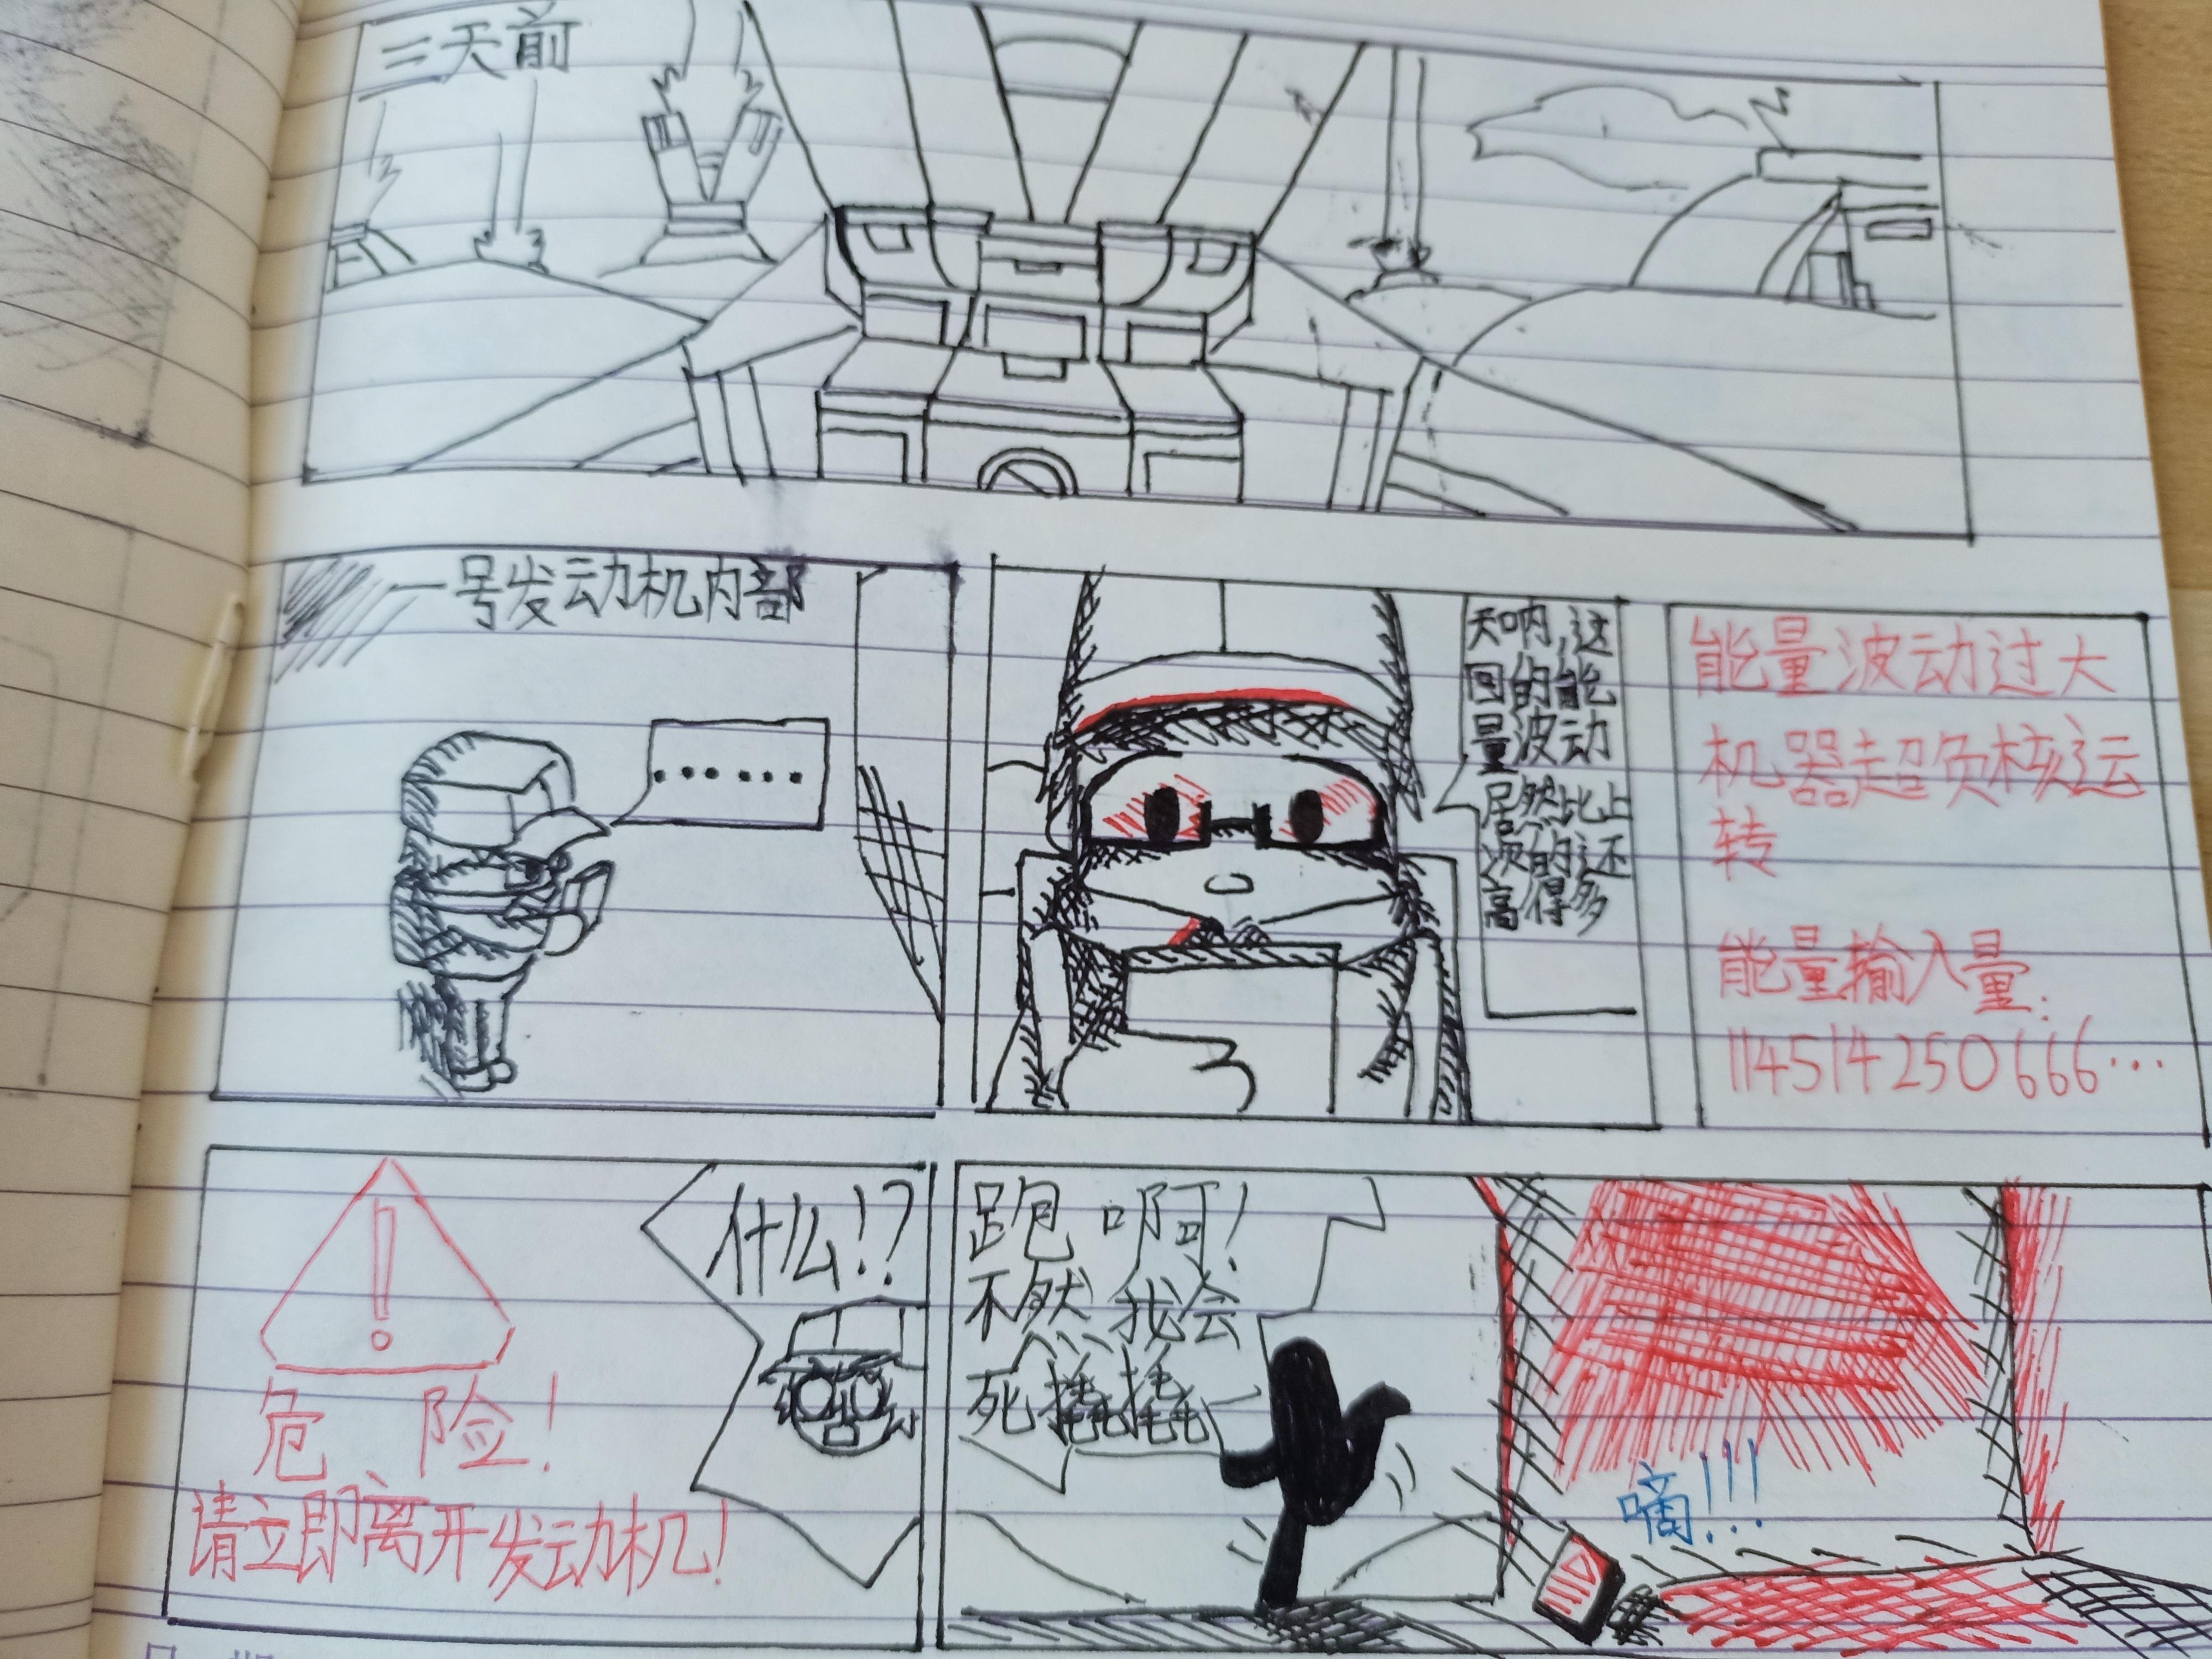 三天前
一号发动机内部
......
天呐,这
回的能
量波动
居然比上
次的还
高得多
能量波动过大
机器超负核运
转
能量输入量:
114514250666...
什么!?
!
危险!
请立即离开发动机!
跑啊!
不然我会
死撬撬
嘀!!!